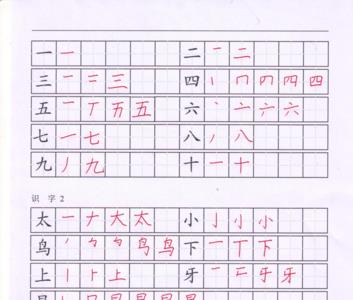 一 一 二 一 二
三 一 二 三 四 丨 冂 四 四 四
五 一 丅 五 五 六 丶 亠 六 六
七 一 七 八 丿 八
九 丿 九 十 一 十
识 字 2
太 一 ナ 大 太 小 亅 小 小
鸟 鸟 鸟 下 一 丅 下
上 丨 上 上 牙 一 牙 牙